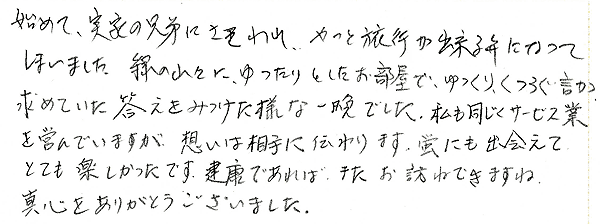 始めて、実家の兄弟にさそわれ、やっと旅行が出来る年になって
しまいました 緑の山々に、ゆったりとしたお部屋で、ゆっくり、くつろぐ
求めていた答えをみつけた様な一晩でした。私も同じくサービス業
を営んでいますが 想いは相手に伝わります。蛍にも出会えて
とても楽しかったです。健康であれば またお訪ねできますね
真心をありがとうございました。